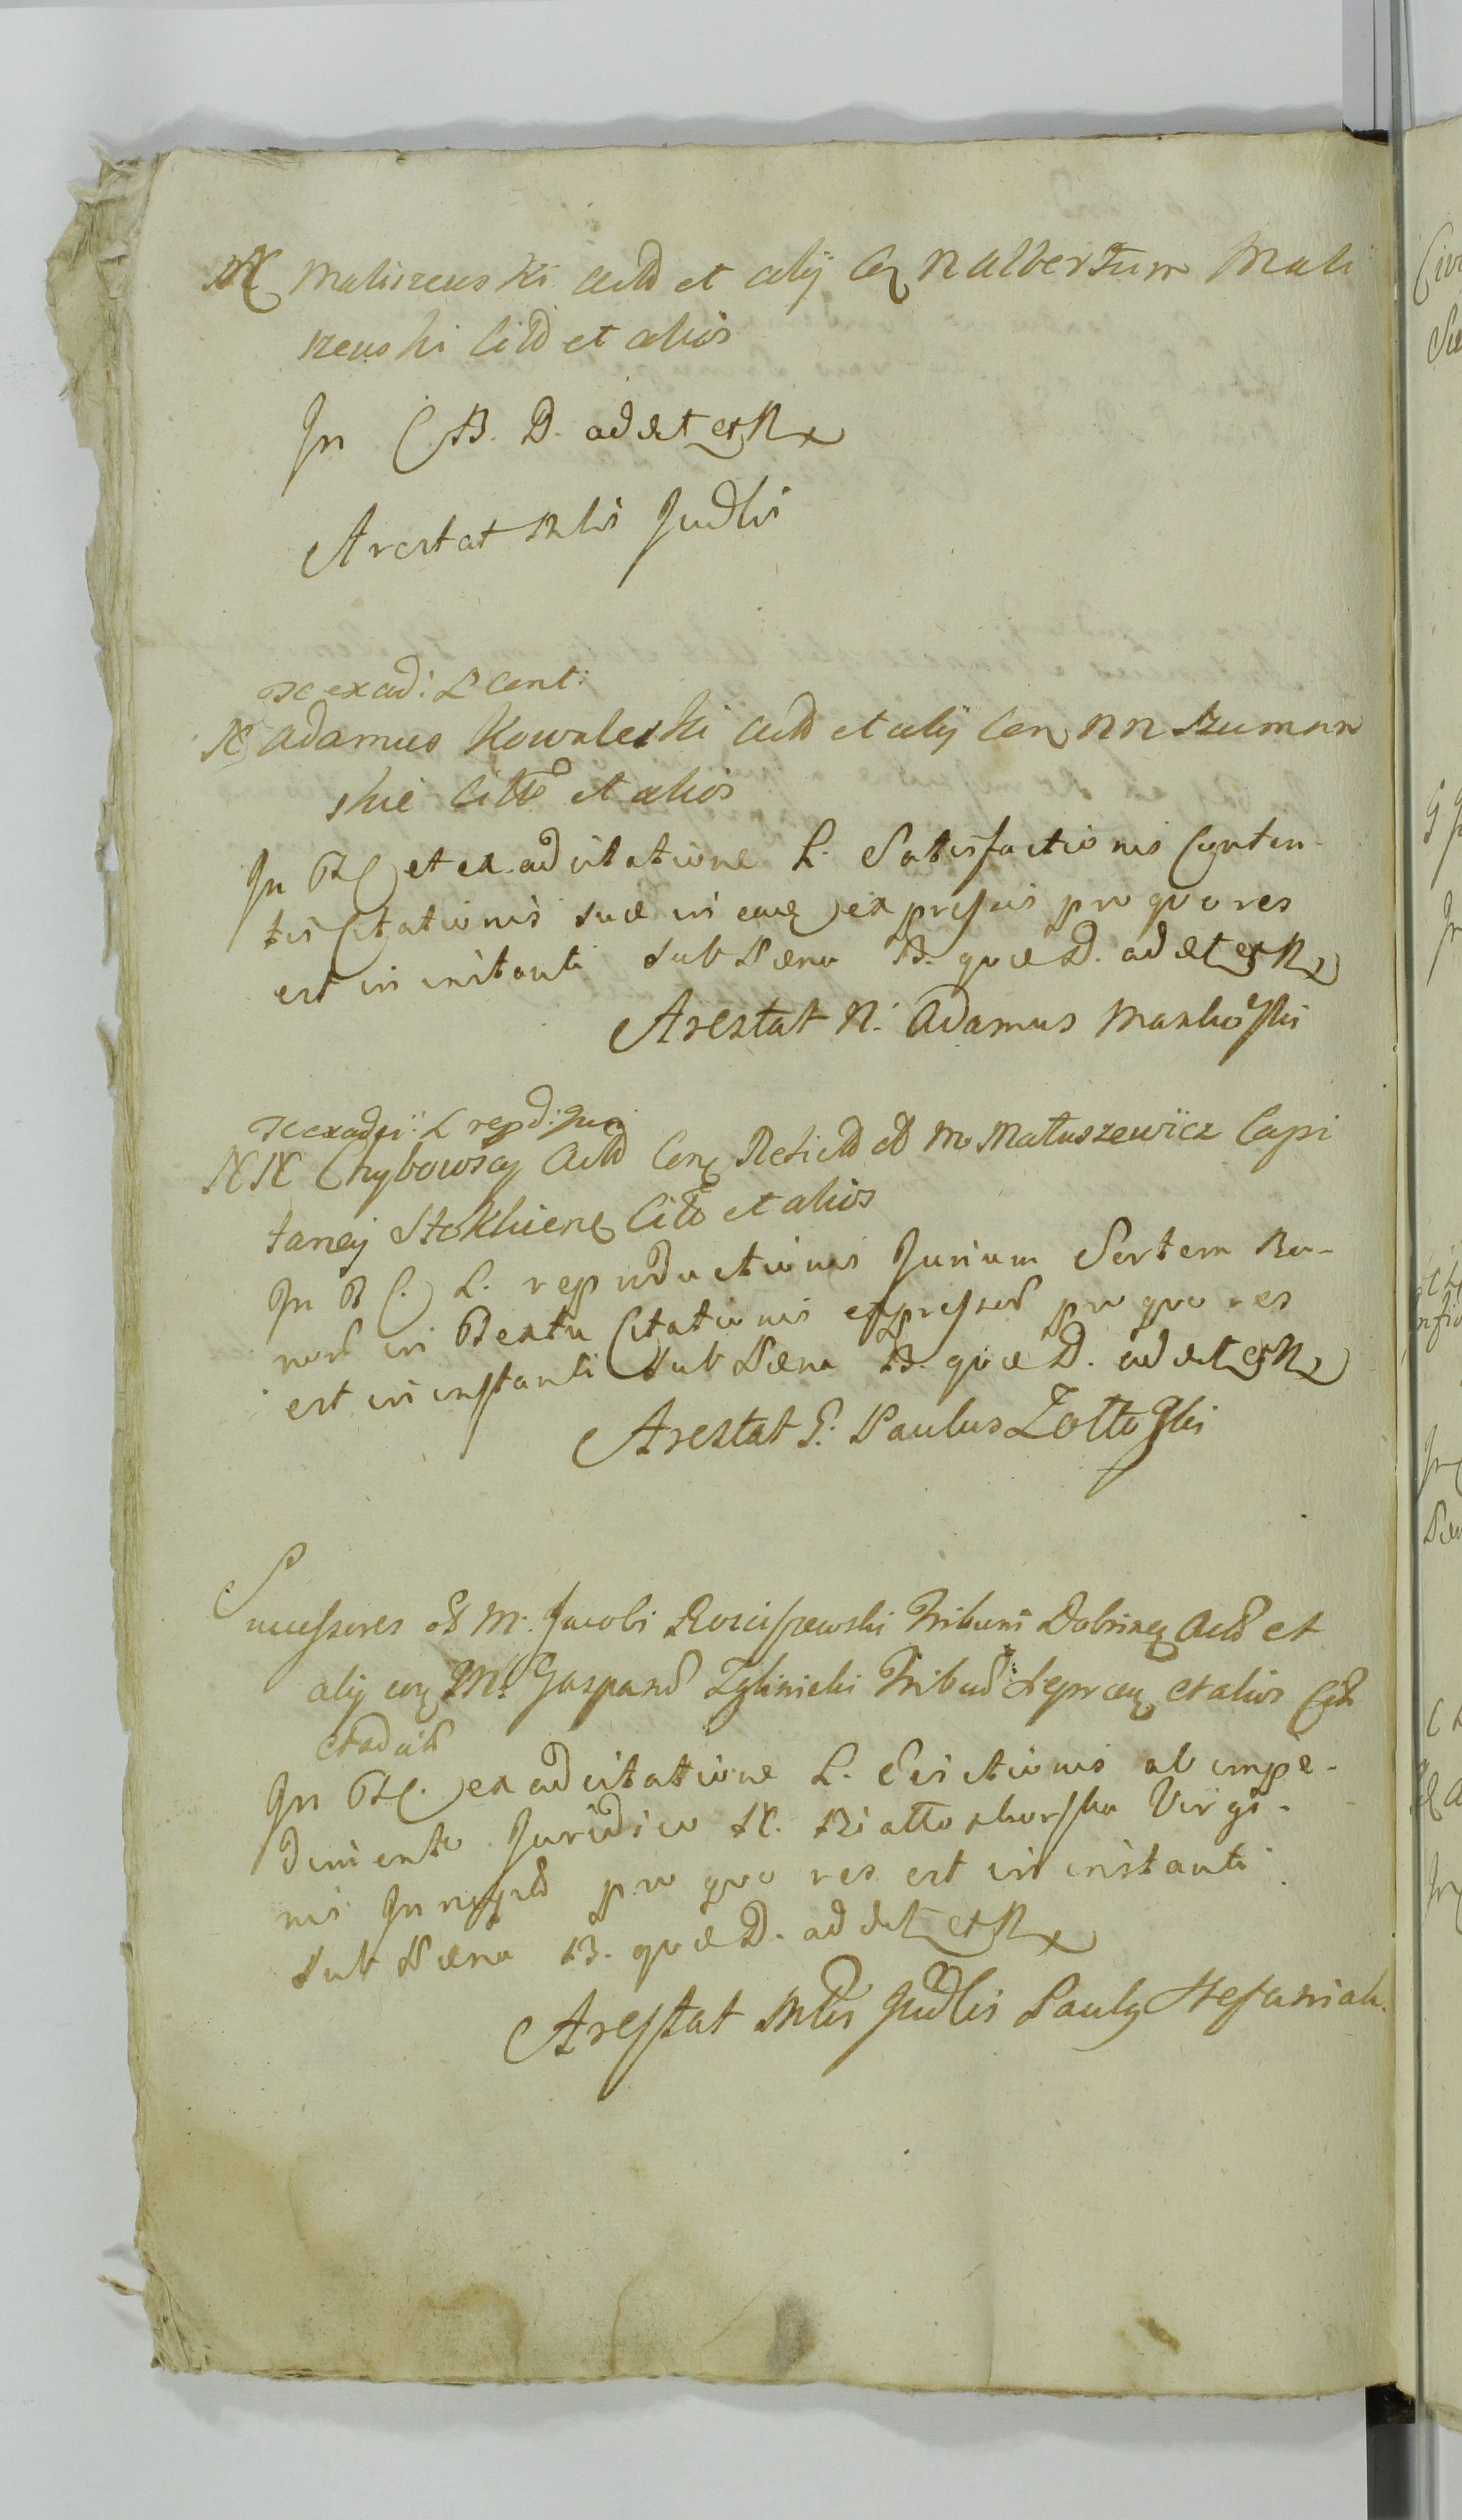 Maliszewski Actd et alij Cq N Albertum Mali
szewski Citd et alios
In C B. D. ad det et N
Arestat Mlis Judlis
TC ex ad: L Cont:
N Adamus Kowalewski Actd et alij Con NN Szuman
skie Citto et alios
In TC et ex adcitatione L. Satisfactionis Conten-
tis Citationis suae in eaq expressis pro quo res
est in instanti sub Paena B. quae D. ad det et N
Arestat N. Adamus Mankoski
TC ex adci: L repd: Jur
NN Chybowscy Actd Conq Relictd M Matuszewicz Capi
taney Stokliens Citd et alios
In T C. L. reproductionis Jurium Sortem Bo-
nord in Textu Citationis expressord pro quo res
est in instanti sub Paena B. quae D. ad det et N
Arestat G. Paulus Zottoski
Successores M. Jacobi Rosciszewski Tribuni Dobrinen Actd et
alij conq M. Gaspard Zglinicki Tribud et alios Citd
et adcitd
In TC. ex adcitatione L. Evictionis ab impe-
dimento Juridico N. Biattoskorska Virgi-
nis pro quo res est in instanti
sub Paena B. quae D. ad det et N
Arestat Mlis Judlis Paulq Stefaniak.